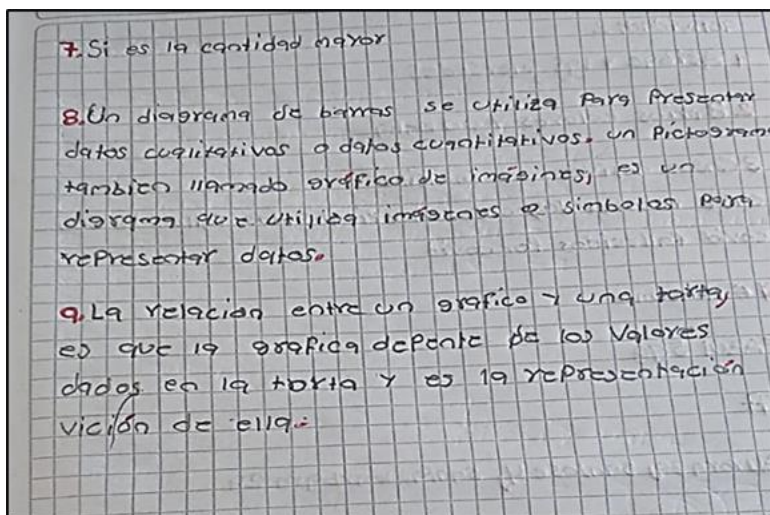 7. Si es la cantidad mayor
8. Un diagrama de barras se utiliza para presentar
datos cualitativos o datos cuantitativos. un Pictogram
tambien llamado gráfico de imágines, es un
diagrama que utiliza imágenes o simbolos para
representar datos.
9. La relacion entre un grafico y una tarta,
es que la grafica depente de los valores
dados en la torta y es la representación
vición de ella.